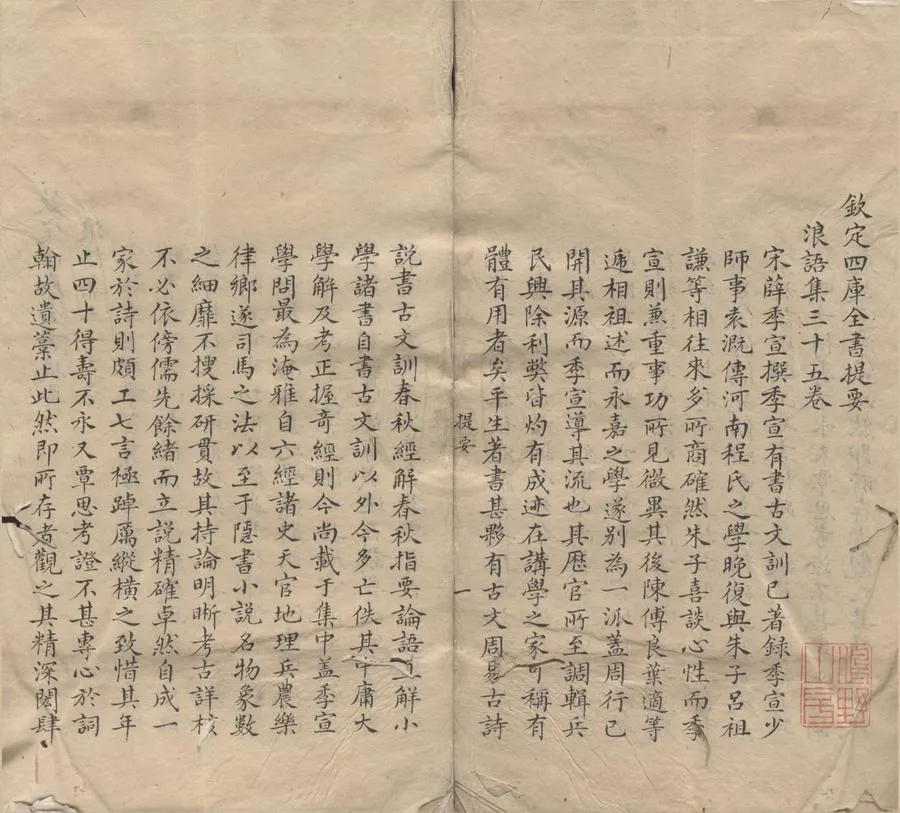 欽定四庫全書提要
浪語集三十五卷
宋薛季宣撰季宣有書古文訓已著録季宣少
師事袁溉傳河南程氏之學晚復與朱子呂祖
謙等相往來多所商確然朱子喜談心性而季
宣則兼重事功所見微異其後陳傅良葉適等
遞相祖述而永嘉之學遂別為一派蓋周行已
開其源而季宣導其流也其歷官所至調輯兵
民興除利弊皆灼有成迹在講學之家可稱有
體有用者矣平生著書甚夥有古文周易古詩
提要
一
說書古文訓春秋經解春秋指要論語直解小
學諸書自書古文訓以外今多亡佚其中庸大
學解及考正握奇經則今尚載于集中蓋季宣
學問最為淹雅自六經諸史天官地理兵農樂
律鄉遂司馬之法以至于隱書小說名物象數
之細靡不搜採研貫故其持論明晰考古詳核
不必依傍儒先餘緒而立說精確卓然自成一
家於詩則頗工七言極踔厲縱橫之致惜其年
止四十得壽不永又覃思考證不甚專心於詞
翰故遺藁止此然即所存者觀之其精深閎肆